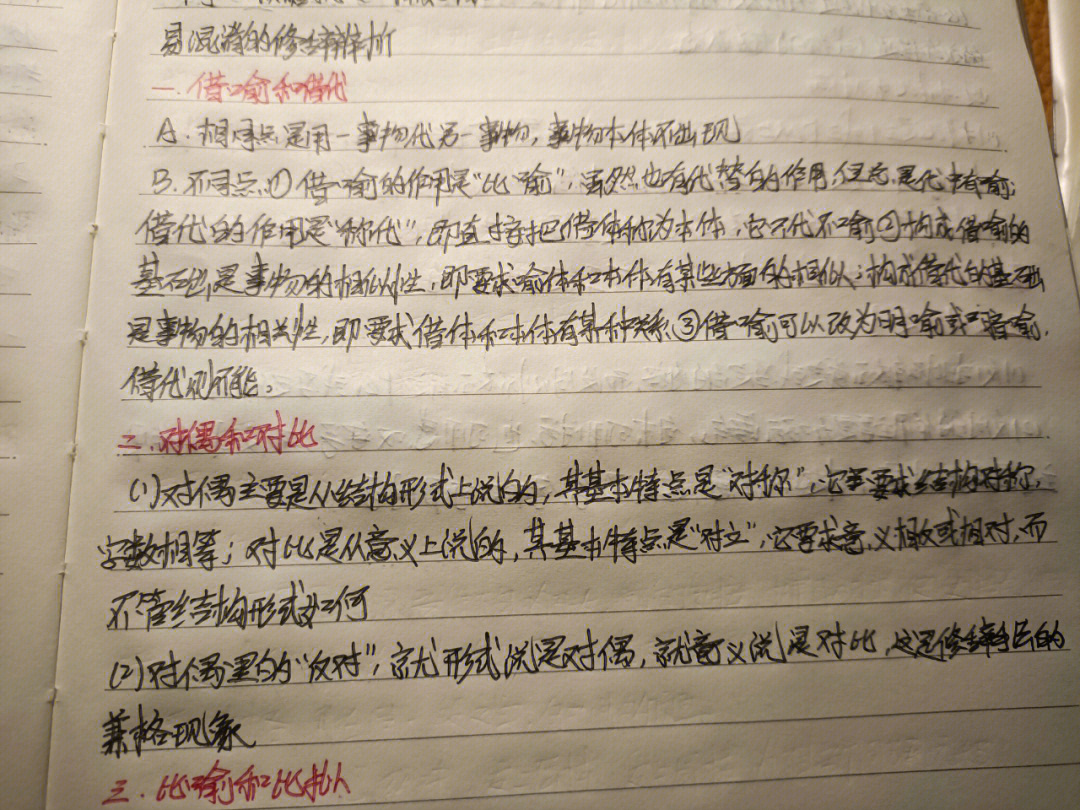 易混淆的修辞辩析
一.借喻和借代
A.相同点是用一事物代另一事物,事物本体不出现
B.不同点①借喻的作用是“比喻”,虽然也有代替的作用,但总是代中有喻;
借代的作用是“称代”,即直接把借体称为本体,它只代不喻②构成借喻的
基础是事物的相似性,即要求喻体和本体有某些方面的相似;构成借代的基础
是事物的相关性,即要求借体和本体有某种关系③借喻可以改为明喻或暗喻,
借代则不能。
二.对偶和对比
(1)对偶主要是从结构形式上说的,其基本特点是“对称”,它要求结构对称,
字数相等;对比是从意义上说的,其基本特点是“对立”,它要求意义相反或相对,而
不管结构形式如何
(2)对偶里的“反对”,就形式说是对偶,就意义说是对比,这是修辞手法的
兼格现象
三.比喻和比拟